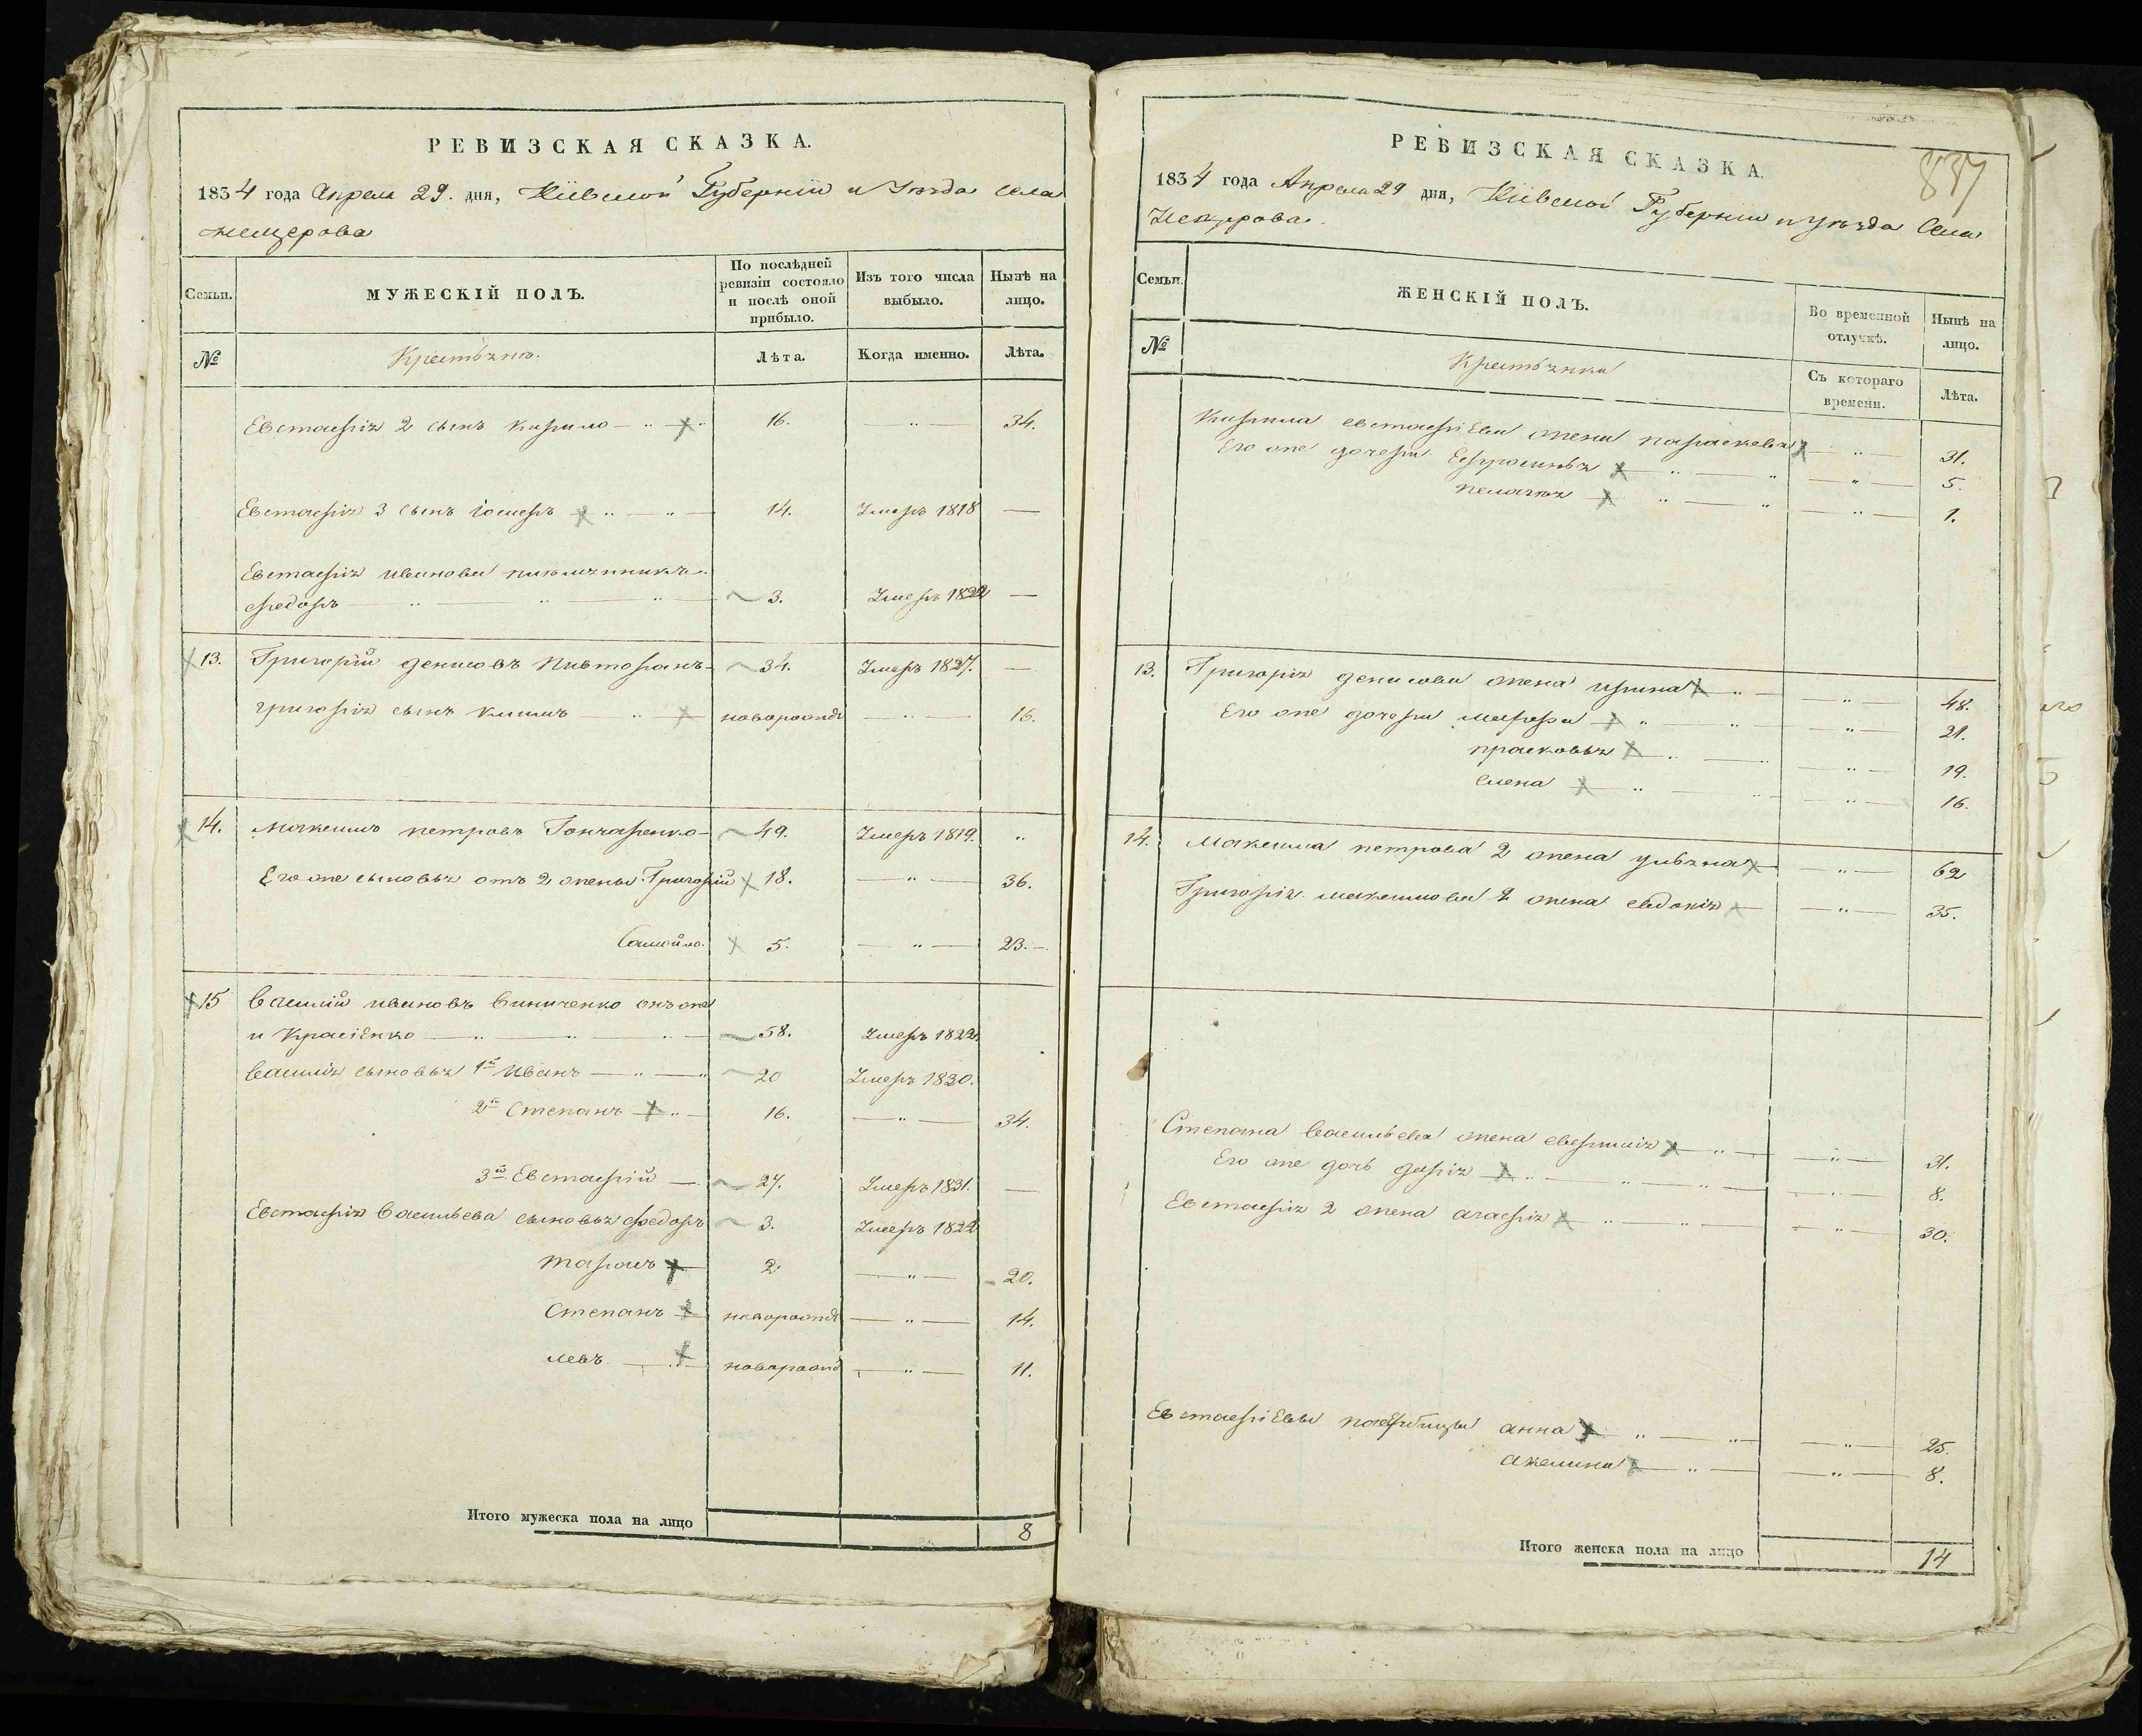 РЕВИЗСКАЯ СКАЗКА.
1834 года Апреля 29. дня, Кіевской Губерніи и Уѣзда Села
Нещерова
Семьи.
МУЖЕСКІЙ ПОЛЪ.
По послѣдней ревизіи состояло и послѣ оной прибыло.
Изъ того числа выбыло.
Нынѣ на лицо.
№
Крестьяне.
Лѣта.
Когда именно.
Лѣта.
Евстафія 2 сынъ Кирило 16. — " — 34.
Евстафія 3 сынъ Іосифъ 14. Умеръ 1818 —
Евстафія Иванова племянникъ
Федоръ 3. Умеръ 1822 —
13. Григорій Денисовъ Пивторакъ 34. Умеръ 1827. —
Григорія сынъ Климъ новорожд — " — 16.
14. Максимъ Петровъ Гончаренко 49. Умеръ 1819. "
Его же сыновья отъ 2 жены Григорій 18. — " — 36.
Самойло. 5. — " — 23.
15 Василій Ивановъ Виниченко онъ же
и Красіенко 58. Умеръ 1822.
Василія сыновья 1й Иванъ 20 Умеръ 1830.
2й Степанъ 16. — " — 34.
3й Евстафій 27. Умеръ 1831. —
Евстафія Васильева сыновья Федоръ 3. Умеръ 1822
Тарасъ 2 — " — 20.
Степанъ новорожд — " — 14.
Левъ новорожд — " — 11.
Итого мужеска пола на лицо 8
РЕВИЗСКАЯ СКАЗКА.
837
1834 года Апреля 29 дня, Кіевской Губерніи и Уѣзда Села
Нещерова.
Семьи.
ЖЕНСКІЙ ПОЛЪ.
Во временной отлучкѣ.
Нынѣ на лицо.
№
Крестьянки
Съ котораго времени.
Лѣта.
Кирила Евстафіева жена Параскева — " — 31.
Его же дочери Ефросинья — " — 5.
Пелагея — " — 1.
13. Григорія Денисова жена Ирина — " — 48.
Его же дочери Марфа — " — 21.
Прасковья — " — 19.
Елена — " — 16.
14. Максима Петрова 2 жена Ульяна — " — 62
Григорія Максимова 2 жена Евдокія — " — 35.
Степана Васильева жена Евфимія — " — 31.
Его же дочь Дарія — " — 8.
Евстафія 2 жена Агафія — " — 30.
Евстафіевы падчерицы Анна — " — 25.
Акелина — " — 8.
Итого женска пола на лицо 14